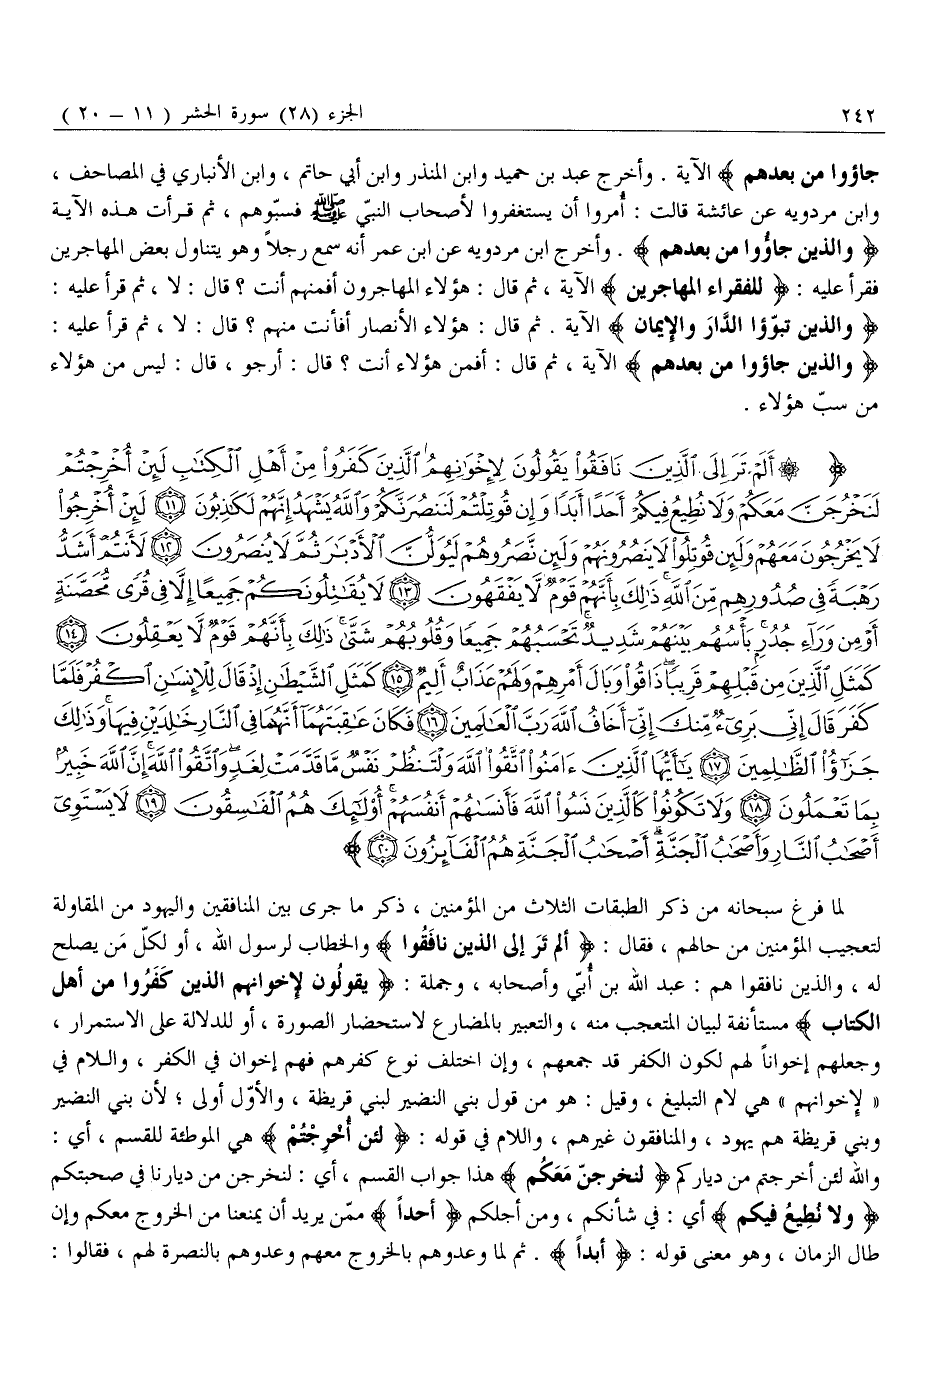 ٢٤٢ الجزء (٢٨) سورة الحشر ( ١١ – ٢٠ )
جاؤوا من بعدهم ﴾ الآية . وأخرج عبد بن حميد وابن المنذر وابن أبي حاتم ، وابن الأنباري في المصاحف ،
وابن مردويه عن عائشة قالت : أُمروا أن يستغفروا لأصحاب النبيّ ﷺ فسبّوهم ، ثم قرأت هذه الآية
﴿ والذين جاؤُوا من بعدهم ﴾ . وأخرج ابن مردويه عن ابن عمر أنه سمع رجلاً وهو يتناول بعض المهاجرين
فقرأ عليه : ﴿ للفقراء المهاجرين ﴾ الآية ، ثم قال : هؤلاء المهاجرون أفمنهم أنت ؟ قال : لا ، ثم قرأ عليه :
﴿ والذين تبوّؤا الدَّارَ والإيمان ﴾ الآية . ثم قال : هؤلاء الأنصار أفأنت منهم ؟ قال : لا ، ثم قرأ عليه :
﴿ والذين جاؤوا من بعدهم ﴾ الآية ، ثم قال : أفمن هؤلاء أنت ؟ قال : أرجو ، قال : ليس من هؤلاء
من سبّ هؤلاء .
﴿ ۞ أَلَمْ تَرَ إِلَى ٱلَّذِينَ نَافَقُوا۟ يَقُولُونَ لِإِخْوَٰنِهِمُ ٱلَّذِينَ كَفَرُوا۟ مِنْ أَهْلِ ٱلْكِتَٰبِ لَئِنْ أُخْرِجْتُمْ
لَنَخْرُجَنَّ مَعَكُمْ وَلَا نُطِيعُ فِيكُمْ أَحَدًا أَبَدًا وَإِن قُوتِلْتُمْ لَنَنصُرَنَّكُمْ وَٱللَّهُ يَشْهَدُ إِنَّهُمْ لَكَٰذِبُونَ ١١ لَئِنْ أُخْرِجُوا۟
لَا يَخْرُجُونَ مَعَهُمْ وَلَئِن قُوتِلُوا۟ لَا يَنصُرُونَهُمْ وَلَئِن نَّصَرُوهُمْ لَيُوَلُّنَّ ٱلْأَدْبَٰرَ ثُمَّ لَا يُنصَرُونَ ١٢ لَأَنتُمْ أَشَدُّ
رَهْبَةً فِى صُدُورِهِم مِّنَ ٱللَّهِ ذَٰلِكَ بِأَنَّهُمْ قَوْمٌ لَّا يَفْقَهُونَ ١٣ لَا يُقَٰتِلُونَكُمْ جَمِيعًا إِلَّا فِى قُرًى مُّحَصَّنَةٍ
أَوْ مِن وَرَآءِ جُدُرٍۭ بَأْسُهُم بَيْنَهُمْ شَدِيدٌ تَحْسَبُهُمْ جَمِيعًا وَقُلُوبُهُمْ شَتَّىٰ ذَٰلِكَ بِأَنَّهُمْ قَوْمٌ لَّا يَعْقِلُونَ ١٤
كَمَثَلِ ٱلَّذِينَ مِن قَبْلِهِمْ قَرِيبًا ذَاقُوا۟ وَبَالَ أَمْرِهِمْ وَلَهُمْ عَذَابٌ أَلِيمٌ ١٥ كَمَثَلِ ٱلشَّيْطَٰنِ إِذْ قَالَ لِلْإِنسَٰنِ ٱكْفُرْ فَلَمَّا
كَفَرَ قَالَ إِنِّى بَرِىٓءٌ مِّنكَ إِنِّىٓ أَخَافُ ٱللَّهَ رَبَّ ٱلْعَٰلَمِينَ ١٦ فَكَانَ عَٰقِبَتَهُمَآ أَنَّهُمَا فِى ٱلنَّارِ خَٰلِدَيْنِ فِيهَا وَذَٰلِكَ
جَزَٰٓؤُا۟ ٱلظَّٰلِمِينَ ١٧ يَٰٓأَيُّهَا ٱلَّذِينَ ءَامَنُوا۟ ٱتَّقُوا۟ ٱللَّهَ وَلْتَنظُرْ نَفْسٌ مَّا قَدَّمَتْ لِغَدٍ وَٱتَّقُوا۟ ٱللَّهَ إِنَّ ٱللَّهَ خَبِيرٌۢ
بِمَا تَعْمَلُونَ ١٨ وَلَا تَكُونُوا۟ كَٱلَّذِينَ نَسُوا۟ ٱللَّهَ فَأَنسَىٰهُمْ أَنفُسَهُمْ أُو۟لَٰٓئِكَ هُمُ ٱلْفَٰسِقُونَ ١٩ لَا يَسْتَوِىٓ
أَصْحَٰبُ ٱلنَّارِ وَأَصْحَٰبُ ٱلْجَنَّةِ أَصْحَٰبُ ٱلْجَنَّةِ هُمُ ٱلْفَآئِزُونَ ٢٠ ﴾
لما فرغ سبحانه من ذكر الطبقات الثلاث من المؤمنين ، ذكر ما جرى بين المنافقين واليهود من المقاولة
لتعجيب المؤمنين من حالهم ، فقال : ﴿ ألم تَرَ إلى الذين نافَقُوا ﴾ والخطاب لرسول الله ، أو لكلّ مَن يصلح
له ، والذين نافقوا هم : عبد الله بن أُبيّ وأصحابه ، وجملة : ﴿ يقولُون لإخوانهم الذين كَفَرُوا من أهل
الكتاب ﴾ مستأنفة لبيان المتعجب منه ، والتعبير بالمضارع لاستحضار الصورة ، أو للدلالة على الاستمرار ،
وجعلهم إخواناً لهم لكون الكفر قد جمعهم ، وإن اختلف نوع كفرهم فهم إخوان في الكفر ، واللام في
« لإخوانهم » هي لام التبليغ ، وقيل : هو من قول بني النضير لبني قريظة ، والأوّل أولى ؛ لأن بني النضير
وبني قريظة هم يهود ، والمنافقون غيرهم ، واللام في قوله : ﴿ لئن أُخْرِجْتُمْ ﴾ هي الموطئة للقسم ، أي :
والله لئن أخرجتم من دياركم ﴿ لنخرجنّ مَعَكُم ﴾ هذا جواب القسم ، أي : لنخرجن من ديارنا في صحبتكم
﴿ ولا نُطِيعُ فيكم ﴾ أي : في شأنكم ، ومن أجلكم ﴿ أحداً ﴾ ممّن يريد أن يمنعنا من الخروج معكم وإن
طال الزمان ، وهو معنى قوله : ﴿ أبداً ﴾ . ثم لما وعدوهم بالخروج معهم وعدوهم بالنصرة لهم ، فقالوا :